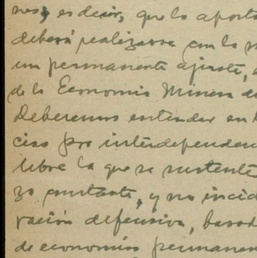 nes, es decir, que lo aport
deberá realizarse con la
un permanente ajuste,
de la Economía Minera de
Deberemos entender en
cias pro interdependen
libre la que se sustente
zo constante, y no incid
ración defensiva, basad
de economías permanen